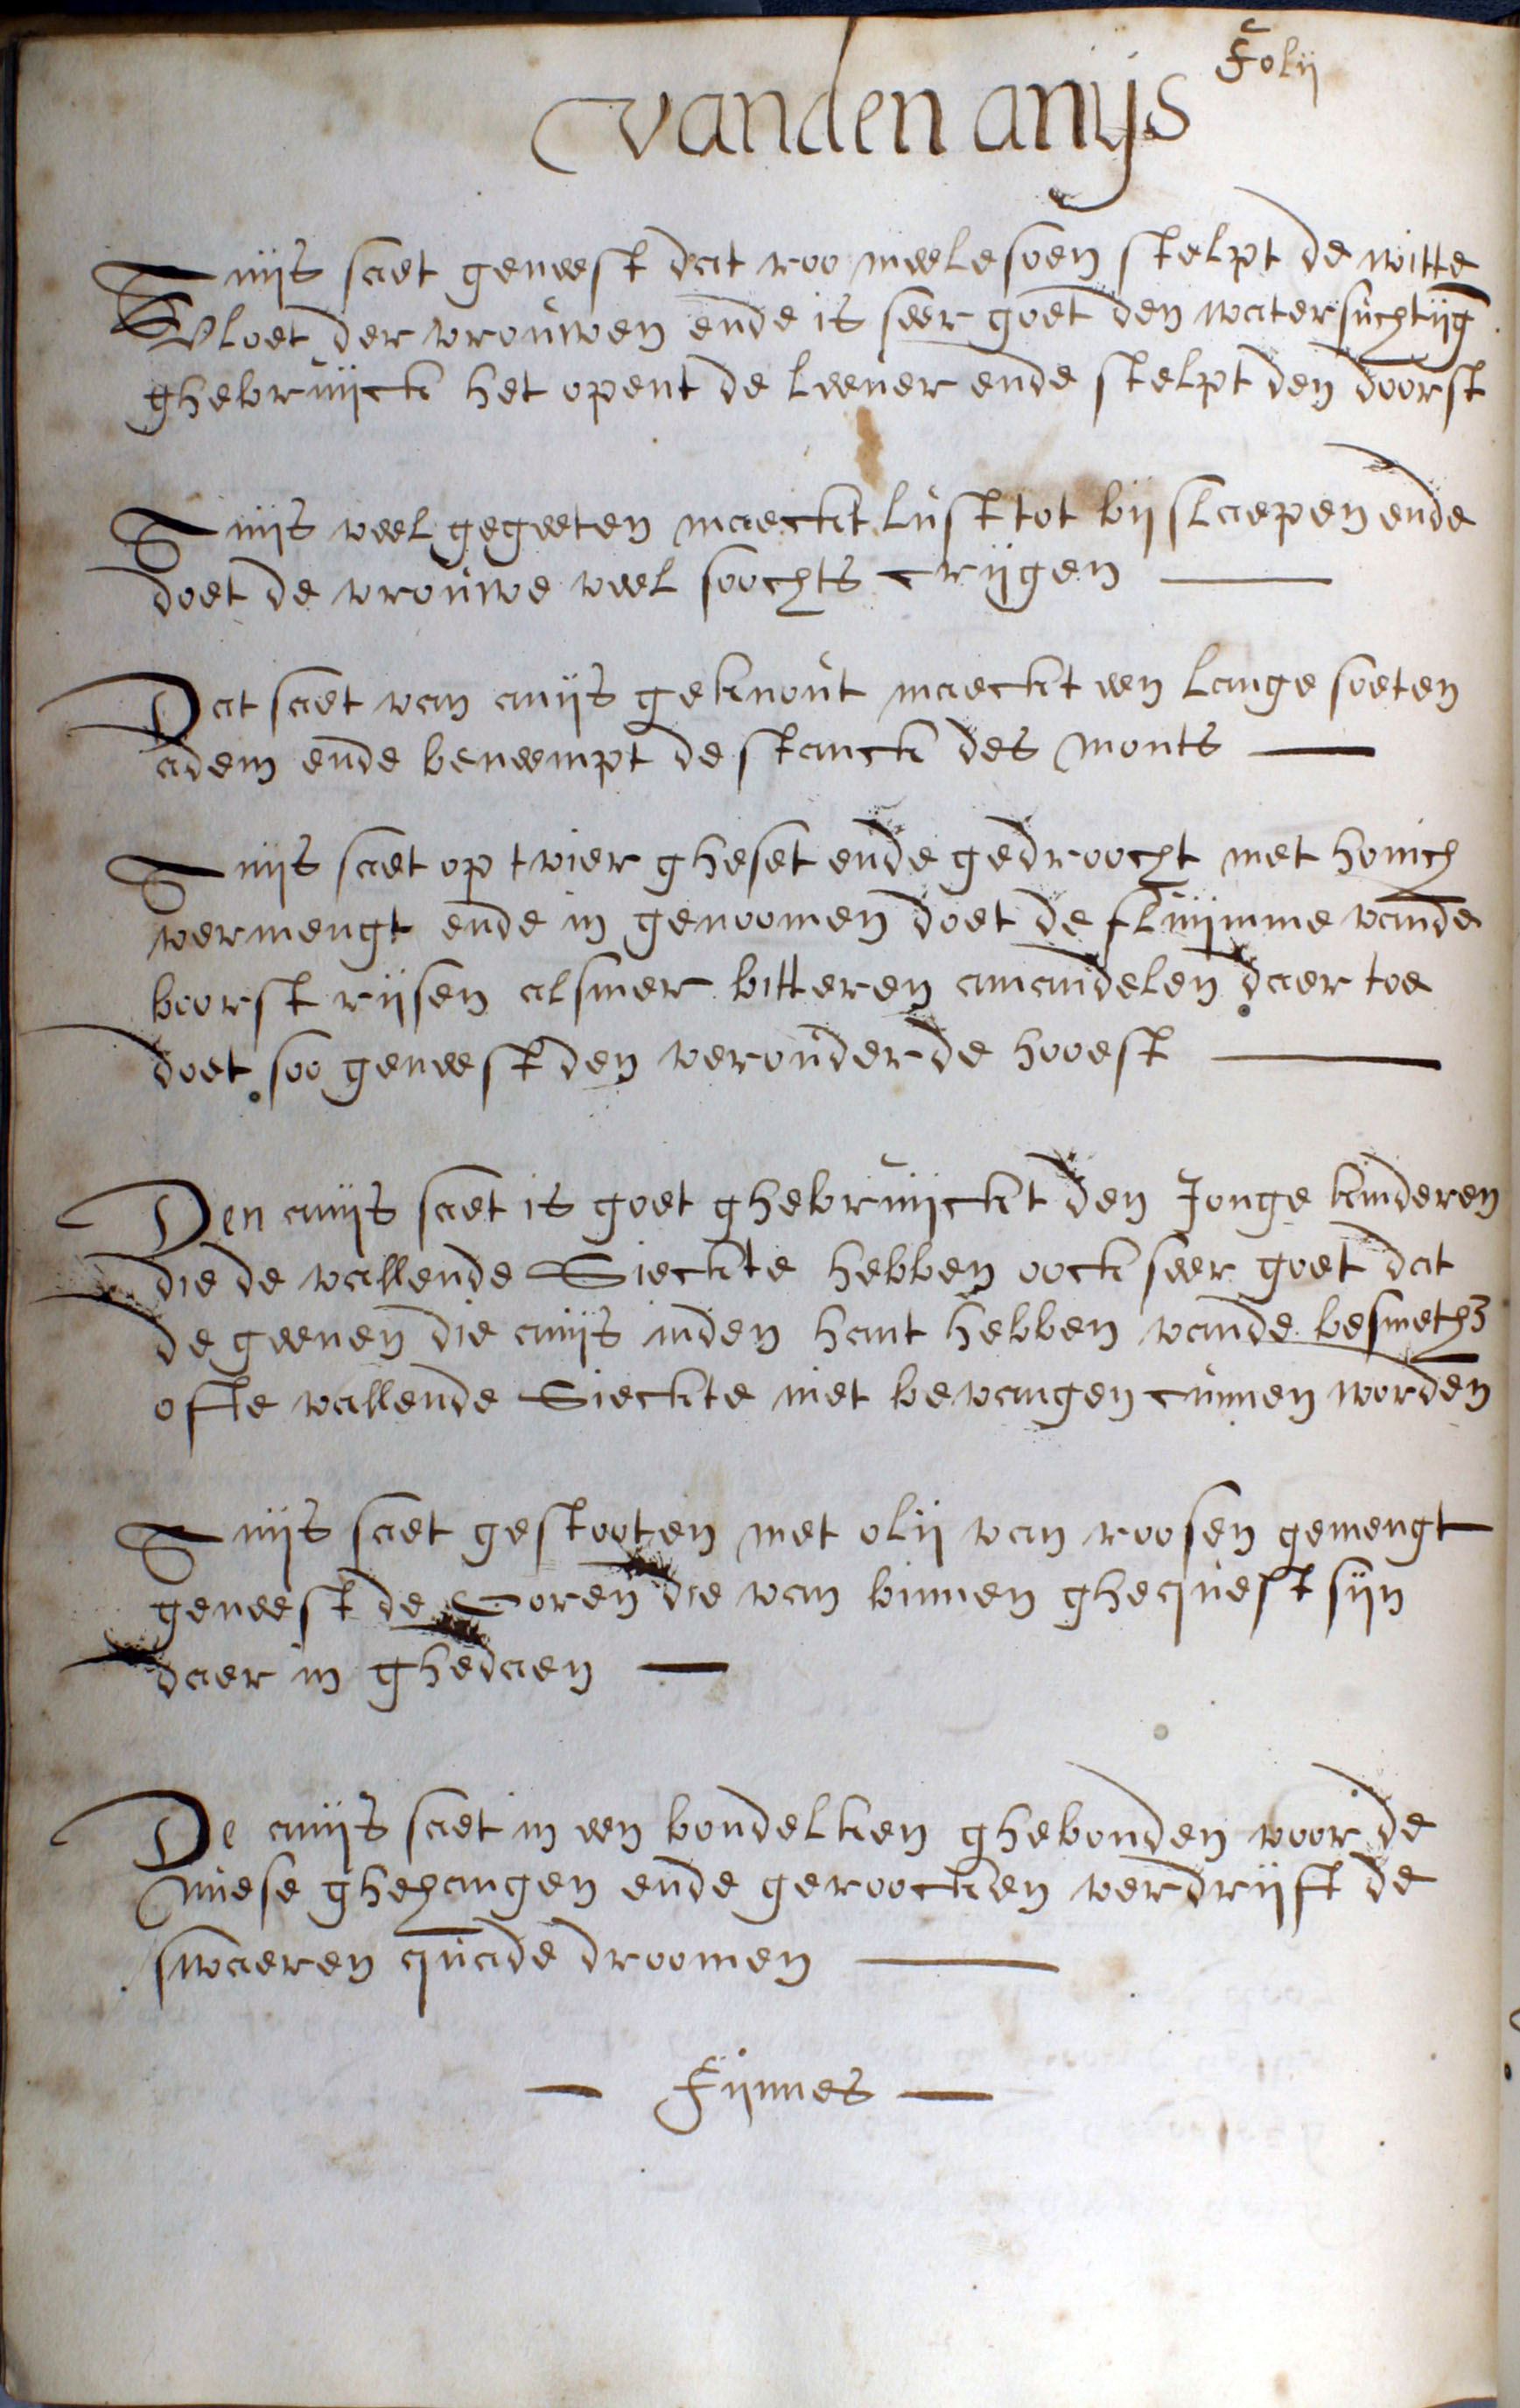 Folij
vanden anijs
Anijs saet geneest dat roo meelesoen stelpt de witte
vloet der vrouwen ende is seer goet den watersuchtijg
ghebruijck het opent de leever ende stelpt den doorst
Anijs veel gegeeten maeckt lust tot bij slaepen ende
doet de vrouwe veel soochts crijgen
Dat saet van anijs geknout maeckt een lange soeten
adem ende beneempt de stanck des monts
Anijs saet op tvier gheset ende gedroocht met honich
vermengt ende in genoomen doet de fluijmme vande
boorst rijsen alsmer bitteren amandelen daer toe
doet soo geneest den verouderde hooest
Den anijs saet is goet ghebruijckt den Jonge kinderen
die de vallende Sieckte hebben oock seer goet dat
de geenen die anijs inden hant hebben vande
ofte vallende Sieckte niet bevangen cunnen worden
Anijs saet gestooten met olij van roosen gemengt
geneest de Ooren die van binnen ghequest sijn
daer in ghedaen
De anijs saet in een bondelken ghebonden voor de
nuese ghehangen ende geroocken verdrijft de
swaeren quade droomen
Fijnnes